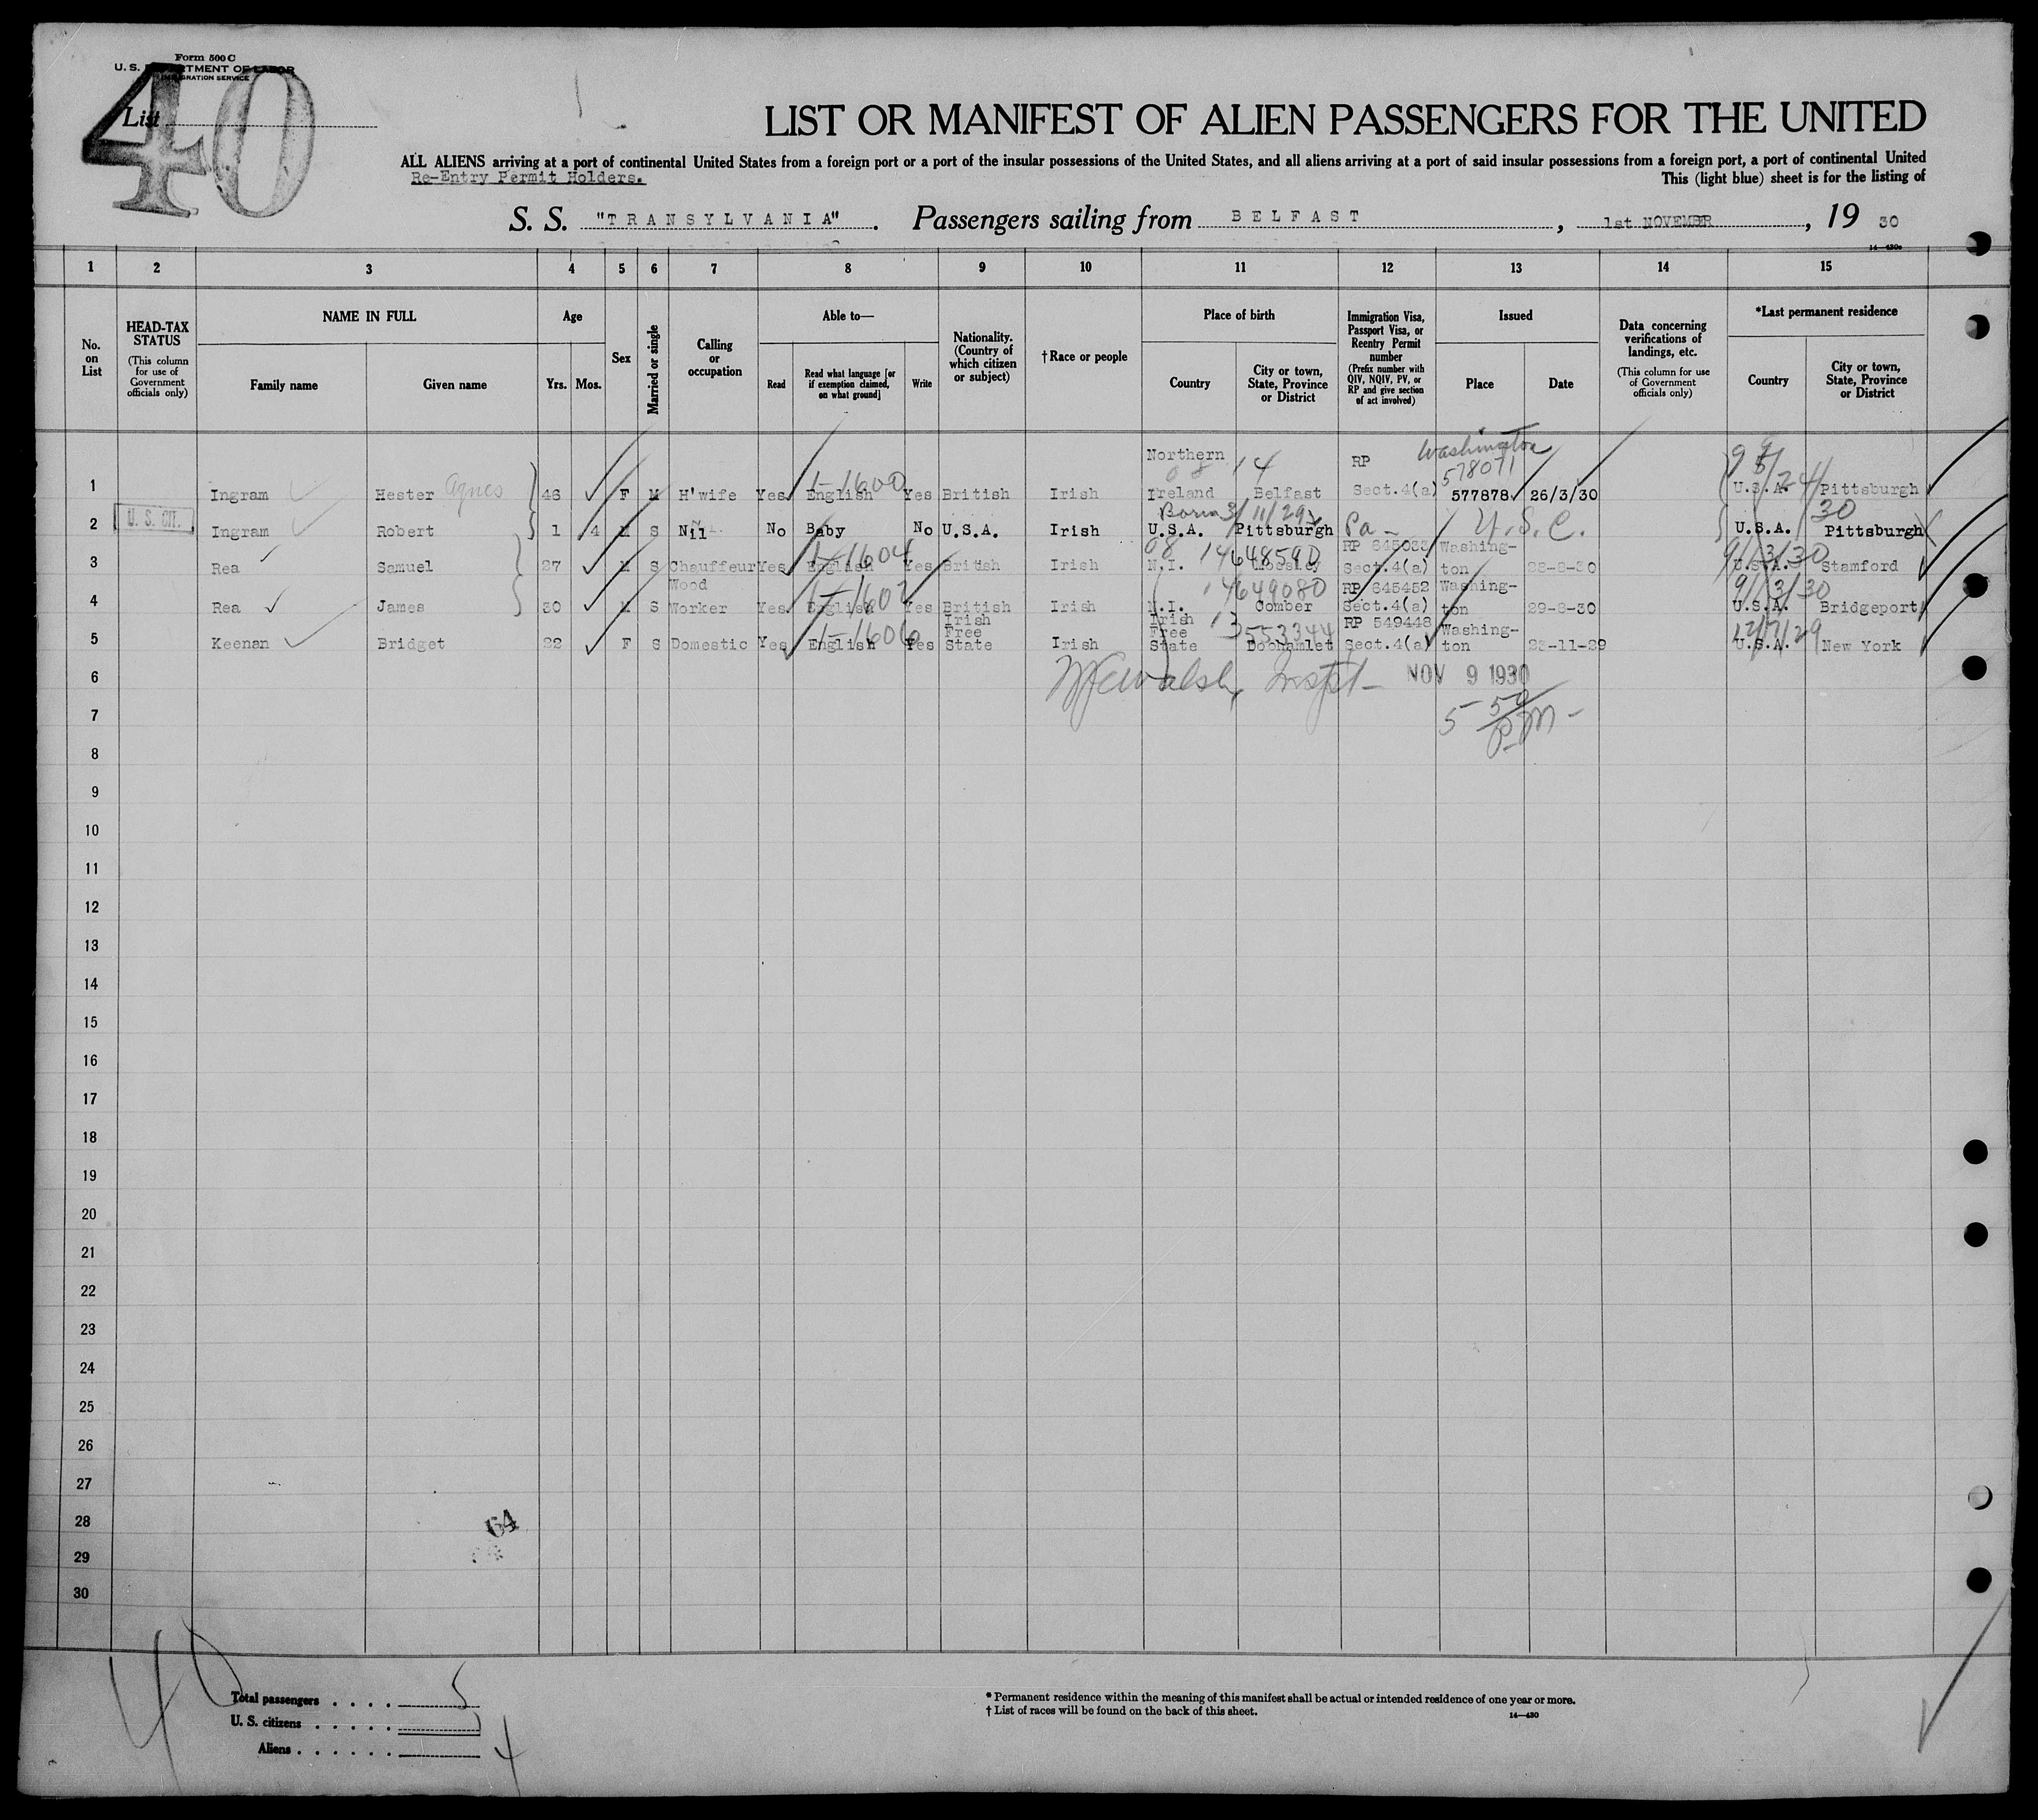 Form 500 C
U. S. DEPARTMENT OF LABOR
IMMIGRATION SERVICE
40
List
LIST OR MANIFEST OF ALIEN PASSENGERS FOR THE UNITED
ALL ALIENS arriving at a port of continental United States from a foreign port or a port of the insular possessions of the United States, and all aliens arriving at a port of said insular possessions from a foreign port, a port of continental United
Re-Entry Permit Holders.
This (light blue) sheet is for the listing of
S. S. "TRANSYLVANIA". Passengers sailing from BELFAST, 1st NOVEMBER, 19 30
14—430c
1 2 3 4 5 6 7 8 9 10 11 12 13 14 15
No. on List
HEAD-TAX STATUS (This column for use of Government officials only)
NAME IN FULL
Family name Given name
Age
Yrs. Mos.
Sex
Married or single
Calling or occupation
Able to—
Read Read what language [or if exemption claimed, on what ground] Write
Nationality. (Country of which citizen or subject)
† Race or people
Place of birth
Country City or town, State, Province or District
Immigration Visa, Passport Visa, or Reentry Permit number (Prefix number with QIV, NQIV, PV, or RP and give section of act involved)
Issued
Place Date
Data concerning verifications of landings, etc. (This column for use of Government officials only)
*Last permanent residence
Country City or town, State, Province or District
Northern 14 RP Washington 578071
1 Ingram Hester Agnes 46 F M H'wife Yes English 1-1600 Yes British Irish Ireland Belfast Sect.4(a) 577878 26/3/30 U.S.A. Pittsburgh
Born 3/11/29 30
U. S. CIT.
2 Ingram Robert 1 4 M S Nil No Baby No U.S.A. Irish U.S.A. Pittsburgh Pa - U.S.C. U.S.A. Pittsburgh
08 14648590 RP 645033 Washing- 9/13/30
3 Rea Samuel 27 M S Chauffeur Yes English 1-1604 Yes British Irish N.I. Sect.4(a) ton 28-8-30 U.S.A. Stamford
Wood 14649080 RP 645452 Washing- 9/13/30
4 Rea James 30 M S Worker Yes English 1-1602 Yes British Irish N.I. Comber Sect.4(a) ton 29-8-30 U.S.A. Bridgeport
Irish Free Irish Free 13 553344 RP 549448 Washing- 12/7/29
5 Keenan Bridget 22 F S Domestic Yes English 1-1606 Yes State Irish State Sect.4(a) ton 23-11-29 U.S.A. New York
6 Walsh, Inspt- NOV 9 1930
7 5 50 PM -
8
9
10
11
12
13
14
15
16
17
18
19
20
21
22
23
24
25
26
27
28
64
29
30
40
Total passengers . . . . 5
U. S. citizens . . . . .
Aliens . . . . . . 4
* Permanent residence within the meaning of this manifest shall be actual or intended residence of one year or more.
† List of races will be found on the back of this sheet.
14—430